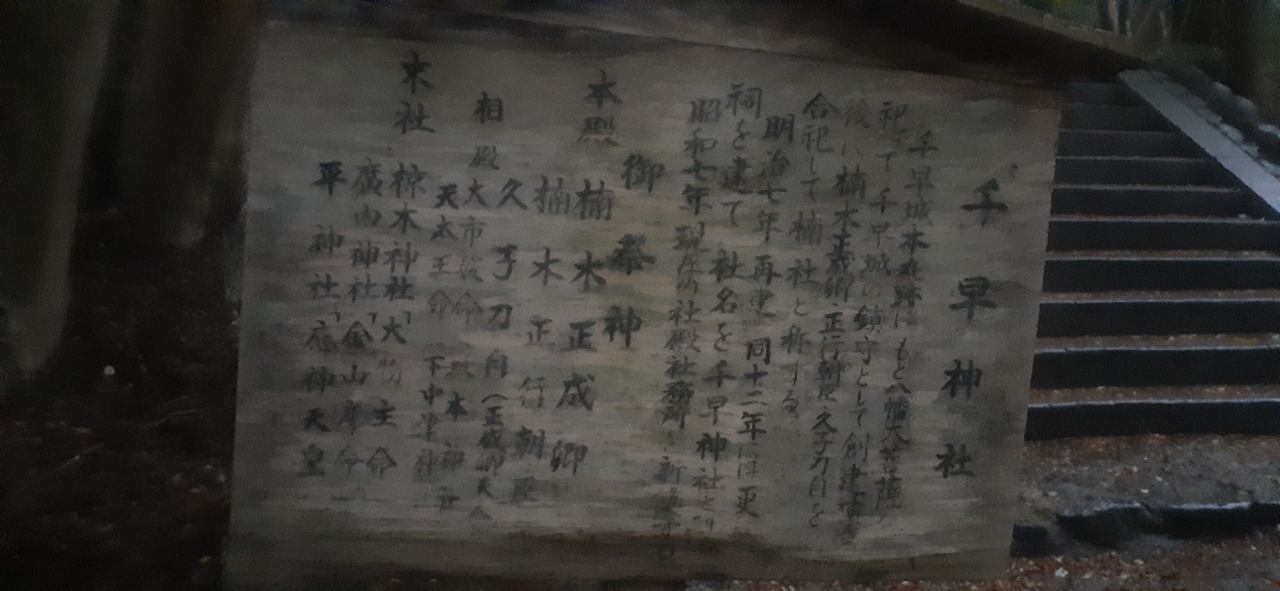 千早神社
千早城本丸跡にもと八幡大菩薩
祀って千早城の鎮守として創建
後に楠木正成卿 正行朝臣 久子刀自を
合祀して楠社と称する
明治七年再建 同十二年には更
祠を建て 社名を千早神社と
昭和七年 現在の社殿社務所
御祭神
本殿 楠木正成卿
楠木正行朝臣
久子刀自（正成卿夫
相殿 大市 命 本神社
天本王命
末社 椋木神社「大物主命
廣内神社「金山 命
平神社「應神天皇